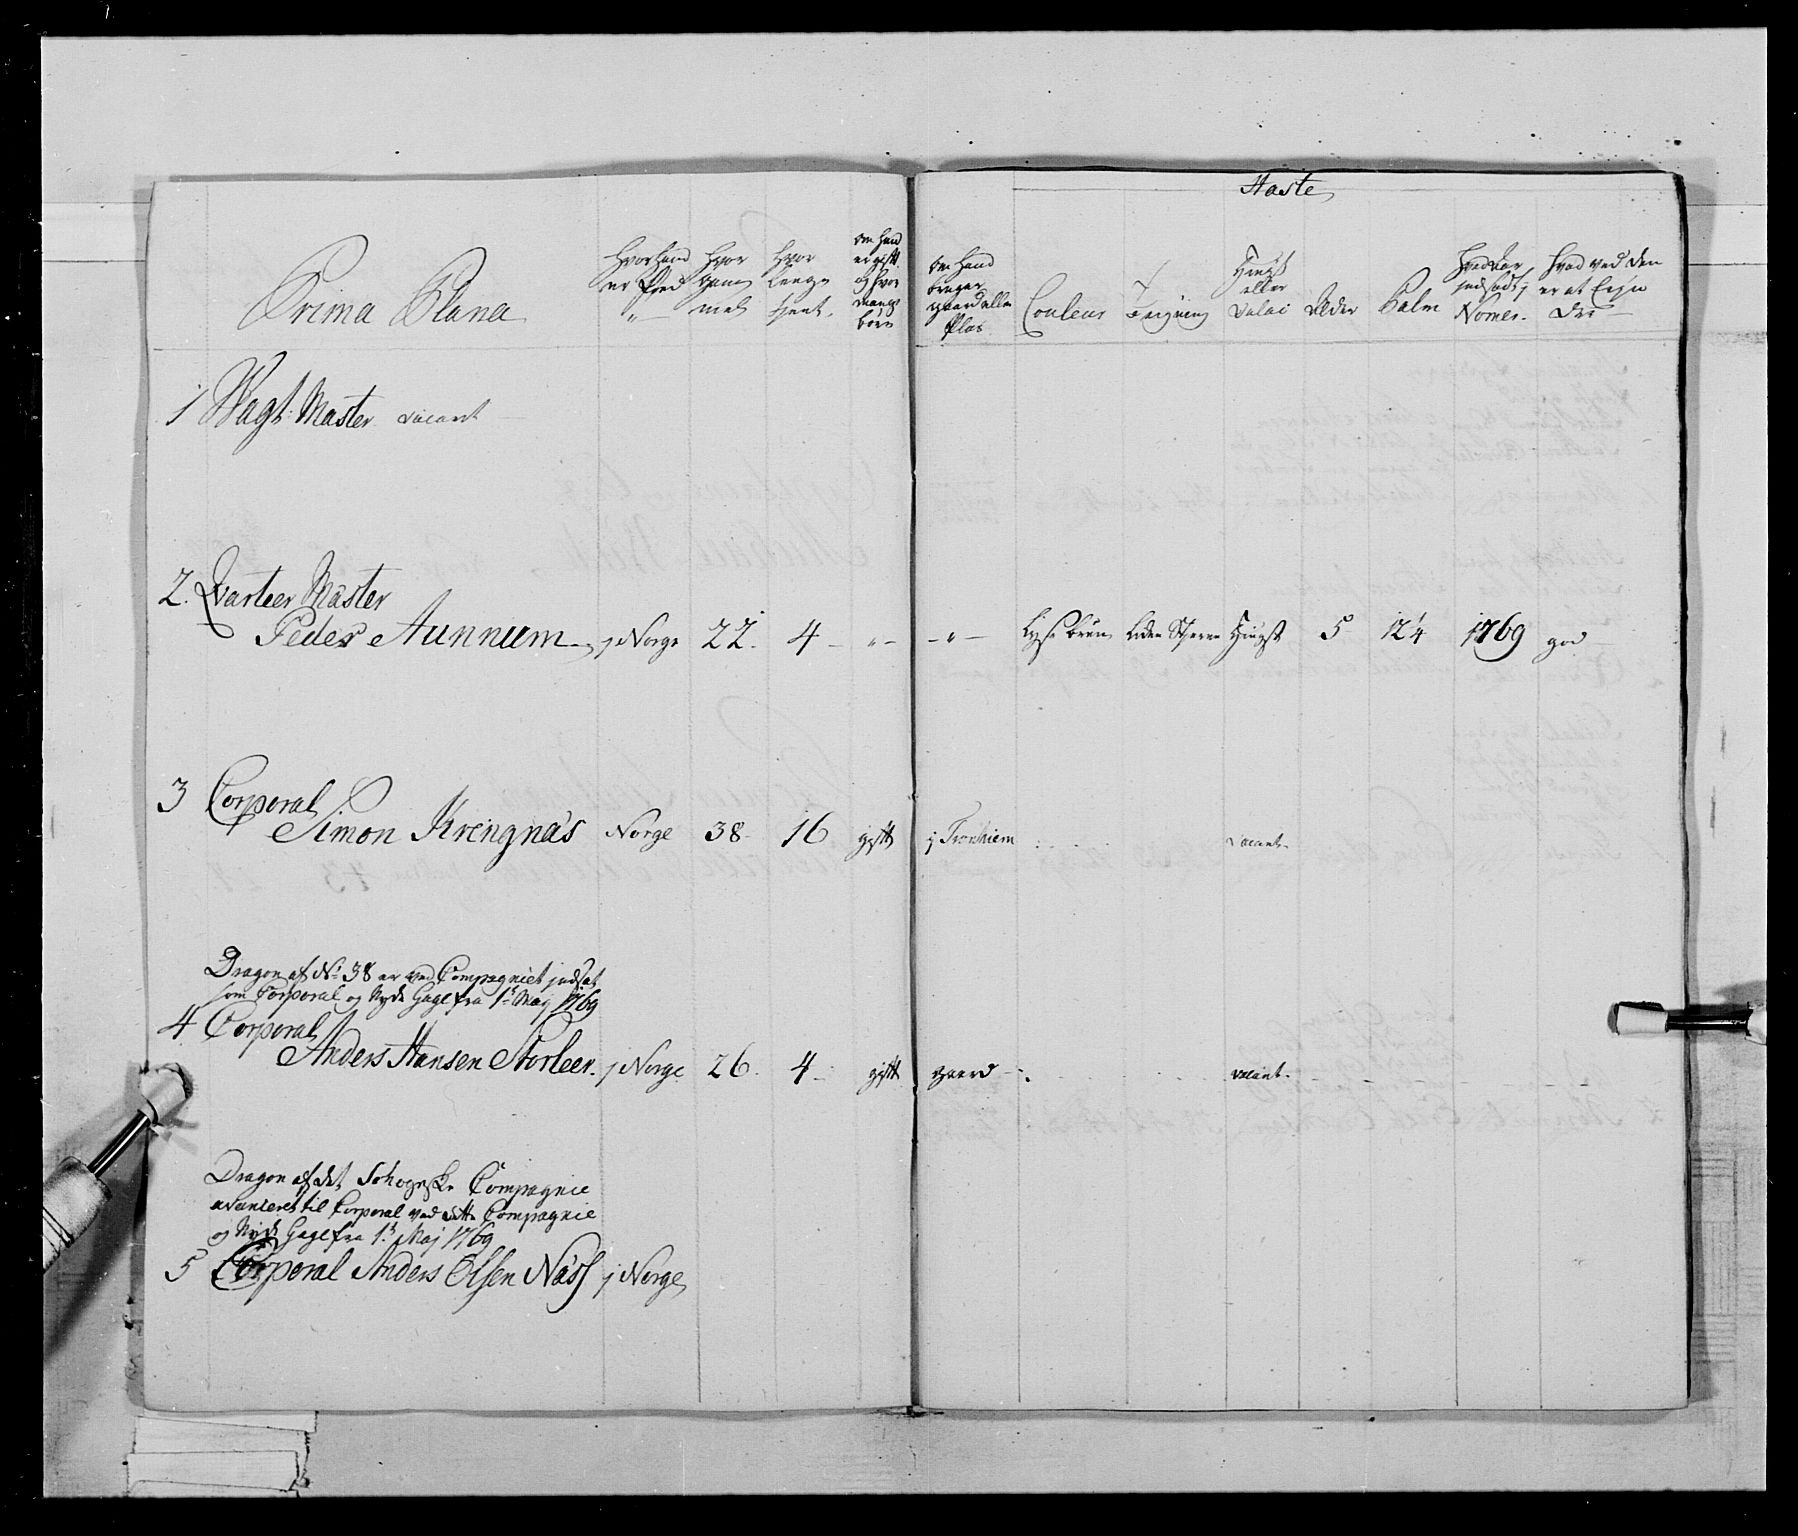 Haste
Prima Plana
Hvor hand er fød
Hvor gammel
Hvor lenge tient.
om hand er gift og hvor mange børn
om hand bruger gaard eller Plas
Couleur
Teigning
Hingst eller Valac
Alder
Palm
hvad Aar indsadt j Nomer.
hvad ved den er at Erindre
1 Wagt Master vacant
2. Qvarteer Master
Peder Aunnum j Norge 22. 4 – „ – – „ – Lyse brun Liden Stierne Hingst 5 12¼ 1769 god
3 Corporal
Simon Krengnæs Norge 38 16 gift j Tronhiem vacant
Dragon af No 38 er ved Compagniet jndsat
som Corporal og Nyde Gage fra 1t Maj 1769
4 Corporal
Anders Hansen Storleer. j Norge 26. 4 gift gaard vacant.
Dragon af det Compagnie
avanceret til Corporal ved dette Compagnie
og Nyde Gage fra 1t Maj 1769
5 Corporal Anders Olsen Næss j Norge